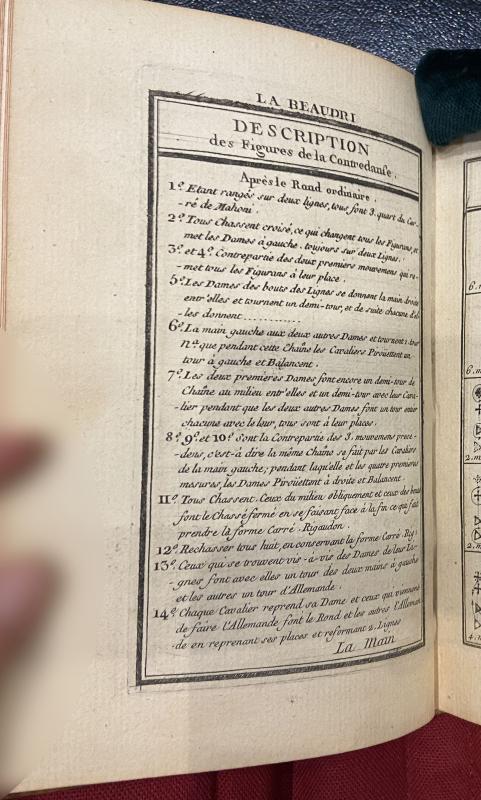 LA BEAUDRI
DESCRIPTION
des Figures de la Contredanse.
Après le Rond ordinaire.
1.º Etant rangés sur deux lignes, tous font 3. quart du Car-
-ré de Mahoni.
2.º Tous Chassent croisé, ce qui changent tous les Figurans, et
met les Dames à gauche toujours sur deux Lignes.
3.º et 4.º Contrepartie des deux premiers mouvemens qui re-
-met tous les Figurans à leur place.
5.º Les Dames des bouts des Lignes se donnent la main droite
entr'elles et tournent un demi-tour, et de suite chacune d'el-
-les donnent
6.º La main gauche aux deux autres Dames et tournent 1. tour
n.ª que pendant cette Chaîne les Cavaliers Pirouëttent un
tour à gauche et Balancent.
7.º Les deux premieres Dames font encore un demi-tour de
Chaîne au milieu entr'elles et un demi-tour avec leur Cava-
-lier pendant que les deux autres Dames font un tour entier
chacune avec le leur, tous sont à leur places.
8.º 9.º et 10.º Sont la Contrepartie des 3. mouvemens prece-
-dens, c'est-à dire la même Chaîne se fait par les Cavaliers
de la main gauche; pendant laqu'elle et les quatre premieres
mesures, les Dames Pirouëttent à droite et Balancent.
11.º Tous Chassent. Ceux du milieu obliquement et ceux des bouts
font le Chassé fermé en se faisant face à la fin ce qui fait
prendre la forme Carré. Rigaudon.
12.º Rechasser tous huit, en conservant la forme Carré. Rig:
13.º Ceux qui se trouvent vis-à-vis des Dames de leur Li-
-gnes font avec elles un tour des deux mains à gauche
et les autres un tour d'Allemande.
14.º Chaque Cavalier reprend sa Dame et ceux qui viennent
de faire l'Allemande font le Rond et les autres l'Alleman
-de en reprenant ses places et reformant 2. Lignes
La Main